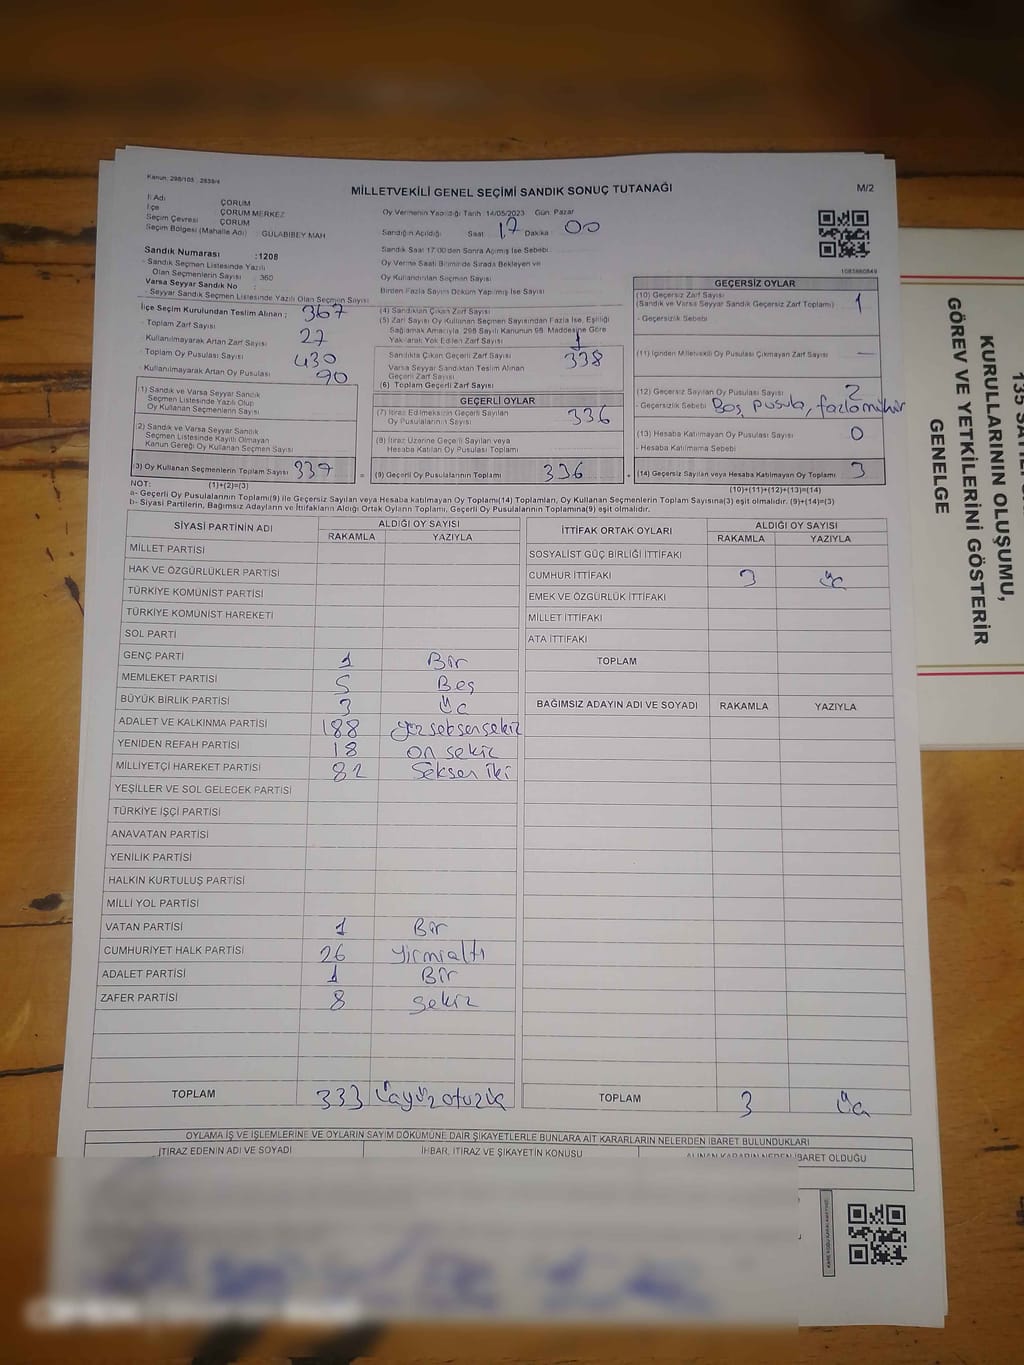 Kanun: 298/105 , 2839/4
MİLLETVEKİLİ GENEL SEÇİMİ SANDIK SONUÇ TUTANAĞI
M/2
İl Adı ÇORUM
İlçe ÇORUM MERKEZ
Seçim Çevresi ÇORUM
Seçim Bölgesi (Mahalle Adı) : GÜLABİBEY MAH
Oy Vermenin Yapıldığı Tarih 14/05/2023 Gün: Pazar
Sandığın Açıldığı Saat 17 Dakika 00
Sandık Saat 17:00'den Sonra Açılmış İse Sebebi
Oy Verme Saati Bitiminde Sırada Bekleyen ve
Oy Kullandırılan Seçmen Sayısı
Birden Fazla Sayım Döküm Yapılmış İse Sayısı
1083880849
Sandık Numarası :1208
- Sandık Seçmen Listesinde Yazılı
Olan Seçmenlerin Sayısı : 360
Varsa Seyyar Sandık No :
- Seyyar Sandık Seçmen Listesinde Yazılı Olan Seçmen Sayısı
İlçe Seçim Kurulundan Teslim Alınan ; 367
- Toplam Zarf Sayısı
- Kullanılmayarak Artan Zarf Sayısı 27
- Toplam Oy Pusulası Sayısı 430
- Kullanılmayarak Artan Oy Pusulası 90
(1) Sandık ve Varsa Seyyar Sandık
Seçmen Listesinde Yazılı Olup
Oy Kullanan Seçmenlerin Sayısı
(2) Sandık ve Varsa Seyyar Sandık
Seçmen Listesinde Kayıtlı Olmayan
Kanun Gereği Oy Kullanan Seçmen Sayısı
(3) Oy Kullanan Seçmenlerin Toplam Sayısı 339
(1)+(2)=(3)
(4) Sandıktan Çıkan Zarf Sayısı
(5) Zarf Sayısı Oy Kullanan Seçmen Sayısından Fazla İse, Eşitliği
Sağlamak Amacıyla, 298 Sayılı Kanunun 98. Maddesine Göre
Yakılarak Yok Edilen Zarf Sayısı 1
Sandıkta Çıkan Geçerli Zarf Sayısı 338
Varsa Seyyar Sandıktan Teslim Alınan
Geçerli Zarf Sayısı
(6) Toplam Geçerli Zarf Sayısı
GEÇERLİ OYLAR
(7) İtiraz Edilmeksizin Geçerli Sayılan
Oy Pusulalarının Sayısı 336
(8) İtiraz Üzerine Geçerli Sayılan veya
Hesaba Katılan Oy Pusulaları Toplamı
= (9) Geçerli Oy Pusulalarının Toplamı 336
GEÇERSİZ OYLAR
(10) Geçersiz Zarf Sayısı 1
(Sandık ve Varsa Seyyar Sandık Geçersiz Zarf Toplamı)
- Geçersizlik Sebebi
(11) İçinden Milletvekili Oy Pusulası Çıkmayan Zarf Sayısı —
(12) Geçersiz Sayılan Oy Pusulası Sayısı 2
- Geçersizlik Sebebi Boş pusula, fazla mühür
(13) Hesaba Katılmayan Oy Pusulası Sayısı 0
- Hesaba Katılmama Sebebi
+ (14) Geçersiz Sayılan veya Hesaba Katılmayan Oy Toplamı 3
(10)+(11)+(12)+(13)=(14)
NOT:
a- Geçerli Oy Pusulalarının Toplamı(9) ile Geçersiz Sayılan veya Hesaba katılmayan Oy Toplamı(14) Toplamları, Oy Kullanan Seçmenlerin Toplam Sayısına(3) eşit olmalıdır. (9)+(14)=(3)
b- Siyasi Partilerin, Bağımsız Adayların ve İttifakların Aldığı Ortak Oyların Toplamı, Geçerli Oy Pusulalarının Toplamına(9) eşit olmalıdır.
SİYASİ PARTİNİN ADI ALDIĞI OY SAYISI
RAKAMLA YAZIYLA
MİLLET PARTİSİ
HAK VE ÖZGÜRLÜKLER PARTİSİ
TÜRKİYE KOMÜNİST PARTİSİ
TÜRKİYE KOMÜNİST HAREKETİ
SOL PARTİ
GENÇ PARTİ 1 Bir
MEMLEKET PARTİSİ 5 Beş
BÜYÜK BİRLİK PARTİSİ 3 Üç
ADALET VE KALKINMA PARTİSİ 188 yüzseksensekiz
YENİDEN REFAH PARTİSİ 18 on sekiz
MİLLİYETÇİ HAREKET PARTİSİ 82 Seksen iki
YEŞİLLER VE SOL GELECEK PARTİSİ
TÜRKİYE İŞÇİ PARTİSİ
ANAVATAN PARTİSİ
YENİLİK PARTİSİ
HALKIN KURTULUŞ PARTİSİ
MİLLİ YOL PARTİSİ
VATAN PARTİSİ 1 Bir
CUMHURİYET HALK PARTİSİ 26 yirmialtı
ADALET PARTİSİ 1 Bir
ZAFER PARTİSİ 8 Sekiz
TOPLAM 333 üçyüzotuzüç
İTTİFAK ORTAK OYLARI ALDIĞI OY SAYISI
RAKAMLA YAZIYLA
SOSYALİST GÜÇ BİRLİĞİ İTTİFAKI
CUMHUR İTTİFAKI 3 üç
EMEK VE ÖZGÜRLÜK İTTİFAKI
MİLLET İTTİFAKI
ATA İTTİFAKI
TOPLAM
BAĞIMSIZ ADAYIN ADI VE SOYADI RAKAMLA YAZIYLA
TOPLAM 3 üç
OYLAMA İŞ VE İŞLEMLERİNE VE OYLARIN SAYIM DÖKÜMÜNE DAİR ŞİKAYETLERLE BUNLARA AİT KARARLARIN NELERDEN İBARET BULUNDUKLARI
İTİRAZ EDENİN ADI VE SOYADI İHBAR, İTİRAZ VE ŞİKAYETİN KONUSU ALINAN KARARIN NEDEN İBARET OLDUĞU
KURULLARININ OLUŞUMU,
GÖREV VE YETKİLERİNİ GÖSTERİR
GENELGE